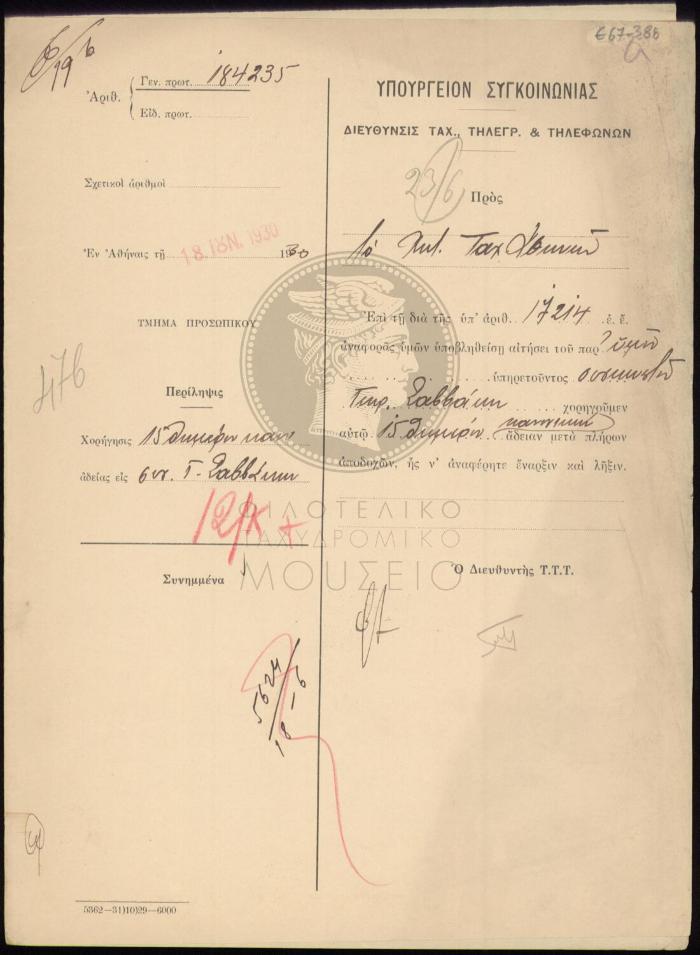 6/19 6
Ε67-386
α
Γεν. πρωτ. 184235
Ἀριθ.
Εἰδ. πρωτ.
Σχετικοὶ ἀριθμοὶ
Ἐν Ἀθήναις τῇ 18. ΙΟΥΝ. 1930 1930
ΤΜΗΜΑ ΠΡΟΣΩΠΙΚΟΥ
476
Περίληψις
Χορήγησις 15θημέρου κανον
ἀδείας εἰς συσ. Γ. Σαββάκη
12/Κ
Συνημμένα
5624
18-6
5362—31)10)29—6000
ΥΠΟΥΡΓΕΙΟΝ ΣΥΓΚΟΙΝΩΝΙΑΣ
ΔΙΕΥΘΥΝΣΙΣ ΤΑΧ., ΤΗΛΕΓΡ. & ΤΗΛΕΦΩΝΩΝ
23/6
Πρὸς
Τὸ Ταχ Ἀθηνῶν
Ἐπὶ τῇ διὰ τῆς ὑπ' ἀριθ. 17214 ἐ. ἔ.
ἀναφορᾶς ὑμῶν ὑποβληθείσῃ αἰτήσει τοῦ παρ' ὑμῖν
ὑπηρετοῦντος συσκευαστοῦ
Γεωρ. Σαββάκη χορηγοῦμεν
κανονικὴν
αὐτῷ 15θήμερον ἄδειαν μετὰ πλήρων
ἀποδοχῶν, ἧς ν' ἀναφέρητε ἔναρξιν καὶ λῆξιν.
Ὁ Διευθυντὴς Τ.Τ.Τ.
ΦΙΛΟΤΕΛΙΚΟ
ΤΑΧΥΔΡΟΜΙΚΟ
ΜΟΥΣΕΙΟ